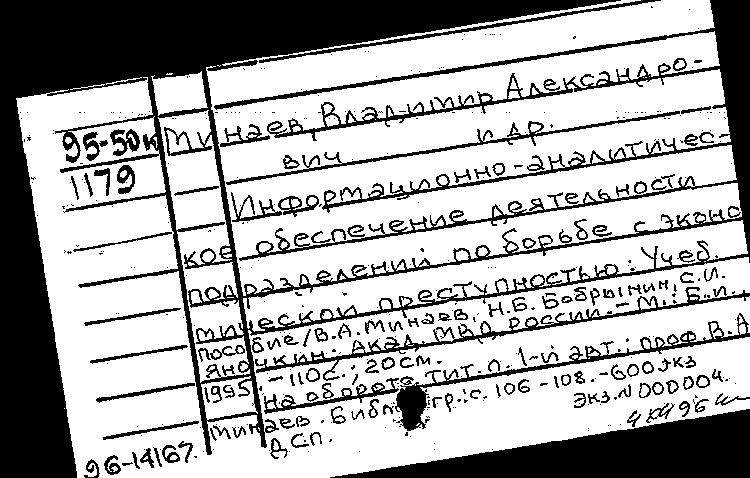 95-50к
1179
Минаев, Владимир Александро-
вич и др.
Информационно-аналитичес-
кое обеспечение деятельности
подразделений по борьбе с эконо
мической преступностью: Учеб.
пособие/В.А.Минаев, Н.Б. Бобрынин, С.И.
Яночкин. Акад. МВД России. - М.: Б.и.,
1995. - 110с.; 20см.
На обороте тит. л. 1-й авт.: проф. В.А
Минаев. - Библиогр.: с. 106-108. - 600экз
ДСП. Экз. N 000004.
96-14167.